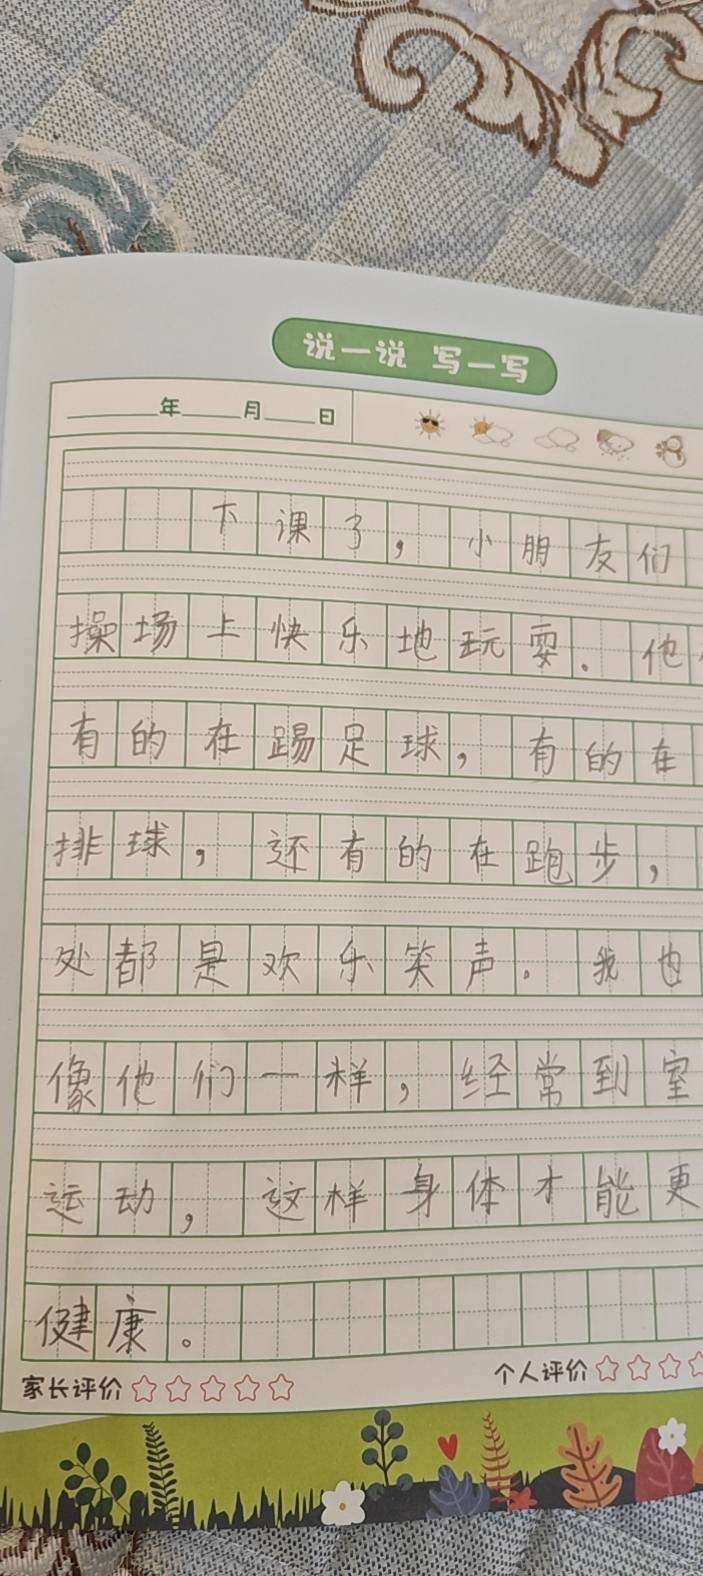 说一说 写一写
年 月 日
下课了，小朋友们
操场上快乐地玩耍。他
有的在踢足球，有的在
排球，还有的在跑步，
处都是欢乐笑声。我也
像他们一样，经常到室
运动，这样身体才能更
健康。
家长评价 个人评价